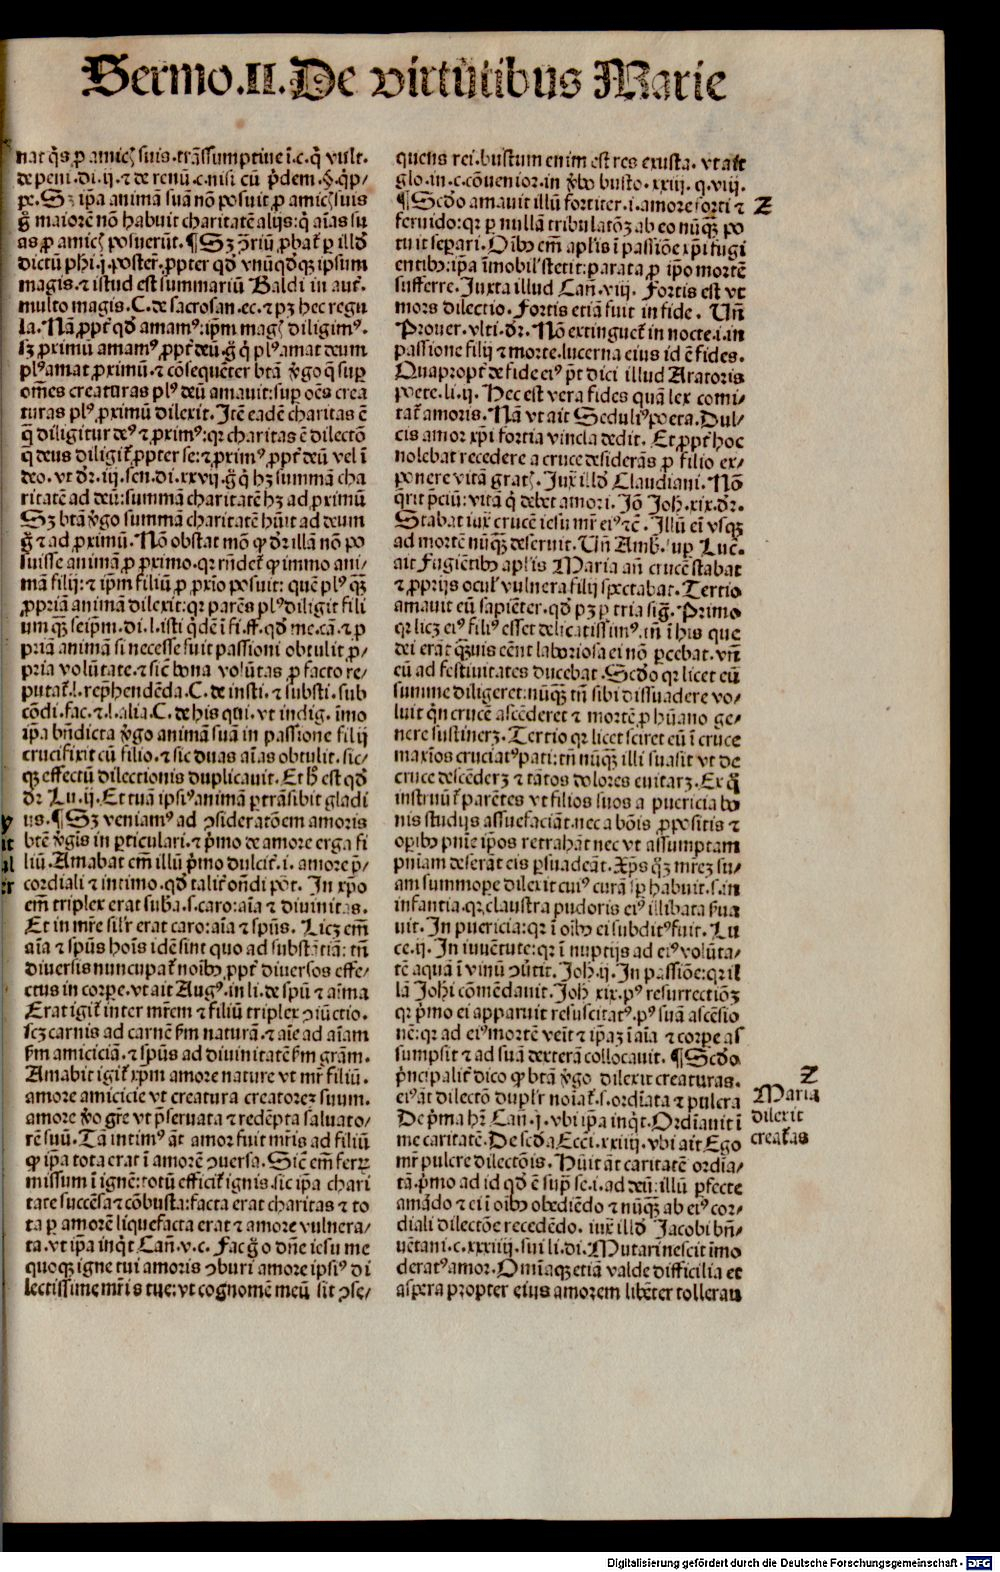 Sermo.II.De virtutibus Marie
nat q̄s ꝓ amicꝭ suis.trāssumptiue i.c.q̄ vult.
de peni.di.ij.⁊ de renū.c.nisi cū p̄dem.§.q̄p/
pe.Sꝫ ip̄a animā suā nō posuit ꝓ amicꝭ suis
g̊ maiorē nō habuit charitatē alijs:q̄ aīas su
as ꝓ amicꝭ posuerūt.¶Sꝫ ↄ̄riū ꝓbat̄ ꝑ illđ
dictū phi.j.poster̄.ꝓpter qđ vnūqđqꝫ ipsum
magis.⁊ istud est summariū Baldi in aut̄.
multo magis.C.de sacrosan.ec.⁊ pꝫ hec regu
la.Nā ꝓpt̄ qđ amamꝰ:ip̄m magꝭ diligimꝰ.
sꝫ ꝓximū amamꝰ ꝓpt̄ deū.g̊ q̇ plꝰ amat deum
plꝰ amat ꝓximū.⁊ cōsequēter btā v̄go q̄ suꝑ
om̄es creaturas plꝰ deū amauit:suꝑ oēs crea
turas plꝰ ꝓximū dilexit.Itē eadē charitas ē
q̄ diligitur deꝰ ⁊ ꝓximꝰ:qꝛ charitas ē dilectō
q̄ deus diligit̄ ꝓpter se:⁊ ꝓximꝰ ꝓpt̄ deū vel ī
deo.vt đr.iij.sen.di.xxvij.g̊ q̇ hꝫ summā cha
ritatē ad deū:summā charitatē hꝫ ad ꝓximū
Sꝫ btā v̄go summā charitatē hūit ad deum
g̊ ⁊ ad ꝓximū.Nō obstat mō ꝙ đr illā nō po
suisse animā ꝓ ꝓximo.qꝛ rn̄det̄ ꝙ immo ani/
mā filij:⁊ ip̄m filiū ꝓ ꝓxīo posuit: quē plꝰ qꝫ
ꝓpriā animā dilexit:qꝛ parēs plꝰ diligit fili
um qꝫ seip̄m.di.l.isti q̇dē ī fi.ff.qđ me.cā.⁊ ꝓ
priā animā si necesse fuit passioni obtulit ꝓ/
pria volūtate.⁊ sic bona volūtas ꝓ facto re/
putat̄.l.rep̄hendēda.C.de insti.⁊ substi.sub
cōdi.fac.⁊.l.alia.C.de his qui.vt indig.īmo
ip̄a bn̄dicta v̄go animā suā in passione filij
crucifixit cū filio.⁊ sic duas aīas obtulit.sic/
qꝫ effectū dilectionis duplicauit.Et h̄ est qđ
đr Lu.ij.Et tuā ipsiꝰ animā ꝑtrāsibit gladi
us.¶Sꝫ veniamꝰ ad ↄsideratōem amoris
btē v̄gis in ꝑticulari.⁊ p̄mo de amore erga fi
liū.Amabat em̄ illū p̄mo dulcit̄.i.amore p̄/
cordiali ⁊ intimo.qđ talit̄ on̄di pōt. In xp̄o
em̄ triplex erat suba.s.caro:aīa ⁊ diuinitas.
Et in mr̄e silr̄ erat caro:aīa ⁊ spūs. Licꝫ em̄
aīa ⁊ spūs hoīs idē sint quo ad substātiā: tn̄
diuersis nuncupat̄ noībꝫ ꝓpt̄ diuersos effe/
ctus in corpe.vt ait Augꝰ.in li.de spū ⁊ aīma
Erat igit̄ inter mr̄em ⁊ filiū triplex ↄiūctio.
scꝫ carnis ad carnē ẜm naturā.⁊ aīe ad aīam
ẜm amiciciā.⁊ spūs ad diuinitatē ẜm grām.
Amabit igit̄ xp̄m amore nature vt mr̄ filiū.
amore amicicie vt creatura creatorem suum.
amore v̄o gr̄e vt p̄seruata ⁊ redēpta saluato/
rē suū.Tā intimꝰ āt amor fuit mr̄is ad filiū
ꝙ ip̄a tota erat ī amorē ↄuersa.Sic em̄ ferꝝ
missum ī ignē:totū efficit̄ ignis.sic ip̄a chari
tate succēsa ⁊ cōbusta:facta erat charitas ⁊ to
ta ꝑ amorē liquefacta erat ⁊ amore vulnera/
ta.vt ip̄a inq̇t Can̄.v.c. Fac g̊o dn̄e iesu me
quoqꝫ igne tui amoris ↄburi amore ipsiꝰ di
lectissime mr̄is tue:vt cognomē meū sit ↄse/
quens rei.bustum enim est res exusta.vt ait
glo.in.c.cōuenior.in v̄bo busto.xxiij.q.viij.
¶Scđo amauit illū fortiter.i.amore forti ⁊
feruido:qꝛ ꝑ nullā tribulatōꝫ ab eo nūqꝫ po
tuit separi.Oībꝫ em̄ aplīs ī passiōe xp̄i fugi
entibꝫ:ip̄a īmobil̄ stetit:parata ꝓ ip̄o mortē
sufferre.Juxta illud Can̄.viij. Fortis est vt
mors dilectio. Fortis etiā fuit in fide. Un̄
Prouer.vlti.đr.Nō extinguet̄ in nocte.i.in
passione filij ⁊ morte.lucerna eius id ē fides.
Quapropt̄ de fide eiꝰ p̄t dici illud Aratoris
poete.li.ij. Hec est vera fides quā lex comi/
tat̄ amoris.Nā vt ait Seduliꝰ poeta.Dul/
cis amor xp̄i fortia vincla dedit. Et ꝓpt̄ hoc
nolebat recedere a cruce desiderās ꝓ filio ex/
ponere vitā gratꝭ. Jux̄ illđ Claudiani. Nō
q̄rit p̄ciū:vitā q̇ debet amori. Jō Joh.xix.đr.
Stabat iux̄ crucē iesu mr̄ eiꝰ ⁊c̄. Illū ei vsqꝫ
ad mortē nūqꝫ deseruit.Un̄ Amb.suꝑ Luc̄.
ait Fugiētibꝫ aplīs Maria an̄ crucē stabat
⁊ ꝓprijs ocul̄ vulnera filij spectabat.Tertio
amauit eū sapiēter.qđ pꝫ ꝑ tria sig̊.Primo
qꝛ licꝫ eiꝰ filiꝰ esset delicatissimꝰ.in̄ ī his que
dei erāt qꝫuis eēnt laboriosa ei nō ꝑcebat.vn̄
eū ad festiuitates ducebat.Scđo qꝛ licet eū
summe diligeret:nūqꝫ tn̄ sibi dissuadere vo/
luit q̇n crucē ascēderet ⁊ mortē ꝓ hūano ge/
nere sustineꝝ.Tertio qꝛ licet sciret eū ī cruce
maxīos cruciatꝰ pati:tn̄ nūqꝫ illi suasit vt de
cruce descēderꝫ ⁊ tātos dolores euitarꝫ.Ex q̊
instruūt̄ parētes vt filios suos a puericia bo
nis studijs assuefaciāt.nec a bōis ꝓpositis ⁊
oꝑibꝫ pnīe ip̄os retrahāt nec vt assumptam
pniam deserāt eis ꝑsuadeāt.Xp̄s qꝫ mr̄eꝫ su/
am summopere dilexit cuiꝰ curā sꝑ habuit.s.in
infantia.qꝛ claustra pudoris eiꝰ illibata ẜua
uit. In puericia:qꝛ ī oībꝫ ei subditꝰ fuit. Lu
ce.ij. In iuuētute:qꝛ ī nuptijs ad eiꝰ volūta/
tē aquā ī vinū ↄūtit. Joh.ij. In passiōe:qꝛ il
lā Johi cōmēdauit. Joh xix.pꝰ resurrectiōꝫ
qꝛ p̄mo ei apparuit resuscitatꝰ.pꝰ suā ascēsio
nē:qꝛ ad eiꝰ mortē veīt ⁊ ip̄aꝫ ī aīa ⁊ corpe as
sumpsit ⁊ ad suā dexterā collocauit.¶Scđo
p̄ncipalit̄ dico ꝙ btā v̄go dilexit creaturas.
eiꝰ āt dilectō duplr̄ noīat̄.s.ordīata ⁊ pulcra
De p̄ma hr̄ Can̄.j.vbi ip̄a inq̇t.Ordīauit ī
me caritatē.De scđa Ecci.xxiiij.vbi ait Ego
mr̄ pulcre dilectōis. Hūit āt caritatē ordīa/
tā.p̄mo ad id qđ ē sup̄ se.i.ad deū:illū ꝑfecte
amādo ⁊ ei ī oībꝫ obediēdo ⁊ nūqꝫ ab eiꝰ cor/
diali dilectōe recedēdo. iux̄ illđ Jacobi bn̄/
uētani.c.xxxiiij.sui li.di.Mutari nescit īmo
deratꝰ amor.Omīaqꝫ etiā valde difficilia et
aspera propter eius amorem libēter tollerau
2
2
Maria
dilexit
creat̄as
Digitalisierung gefördert durch die Deutsche Forschungsgemeinschaft - DFG